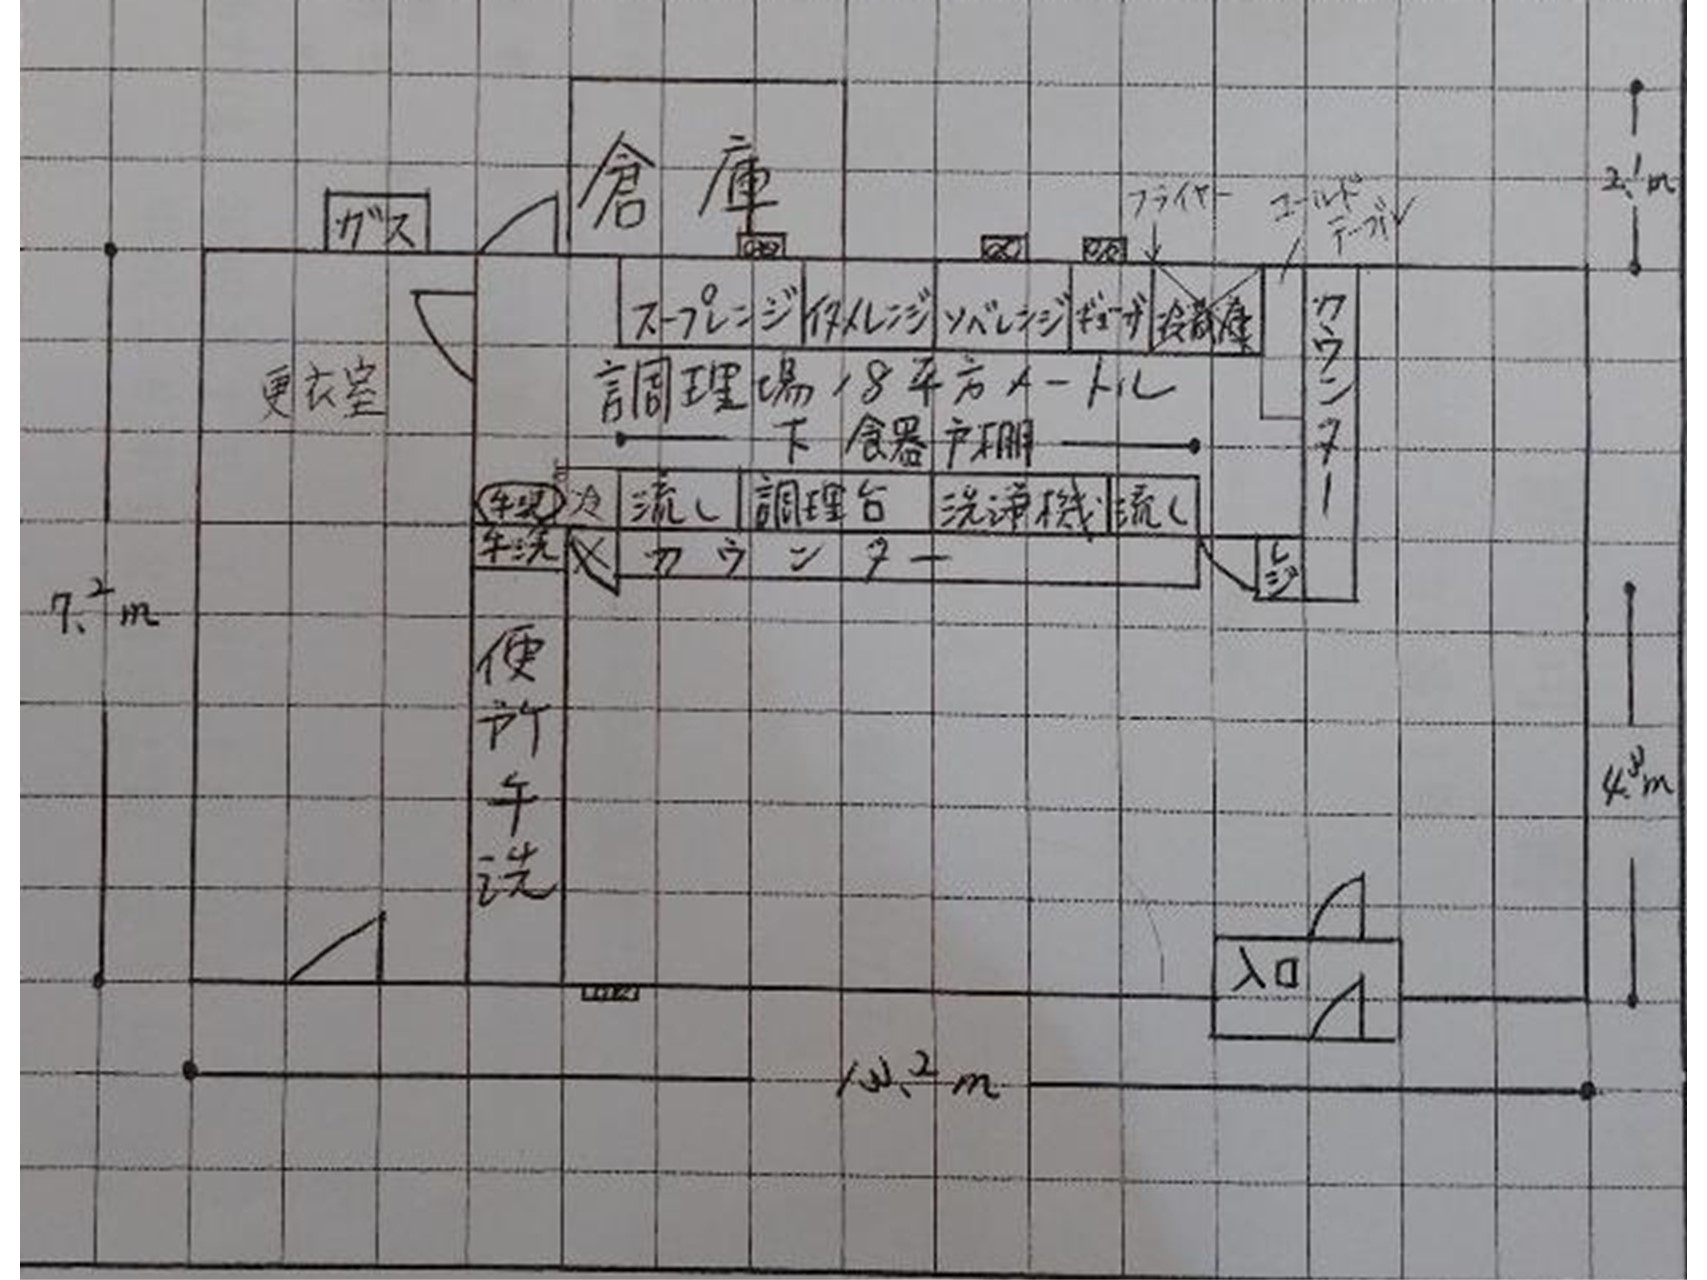 倉庫
2.1m
ガス
フライヤー
コールド
テーブル
スープレンジ
イタメレンジ
ソバレンジ
ギョーザ
冷蔵庫
カウンター
更衣室
調理場18平方メートル
下 食器戸棚
手洗
冷
流し
調理台
洗浄機
流し
手洗
カウンター
レジ
7.2m
便所手洗
4.3m
入口
13.2m